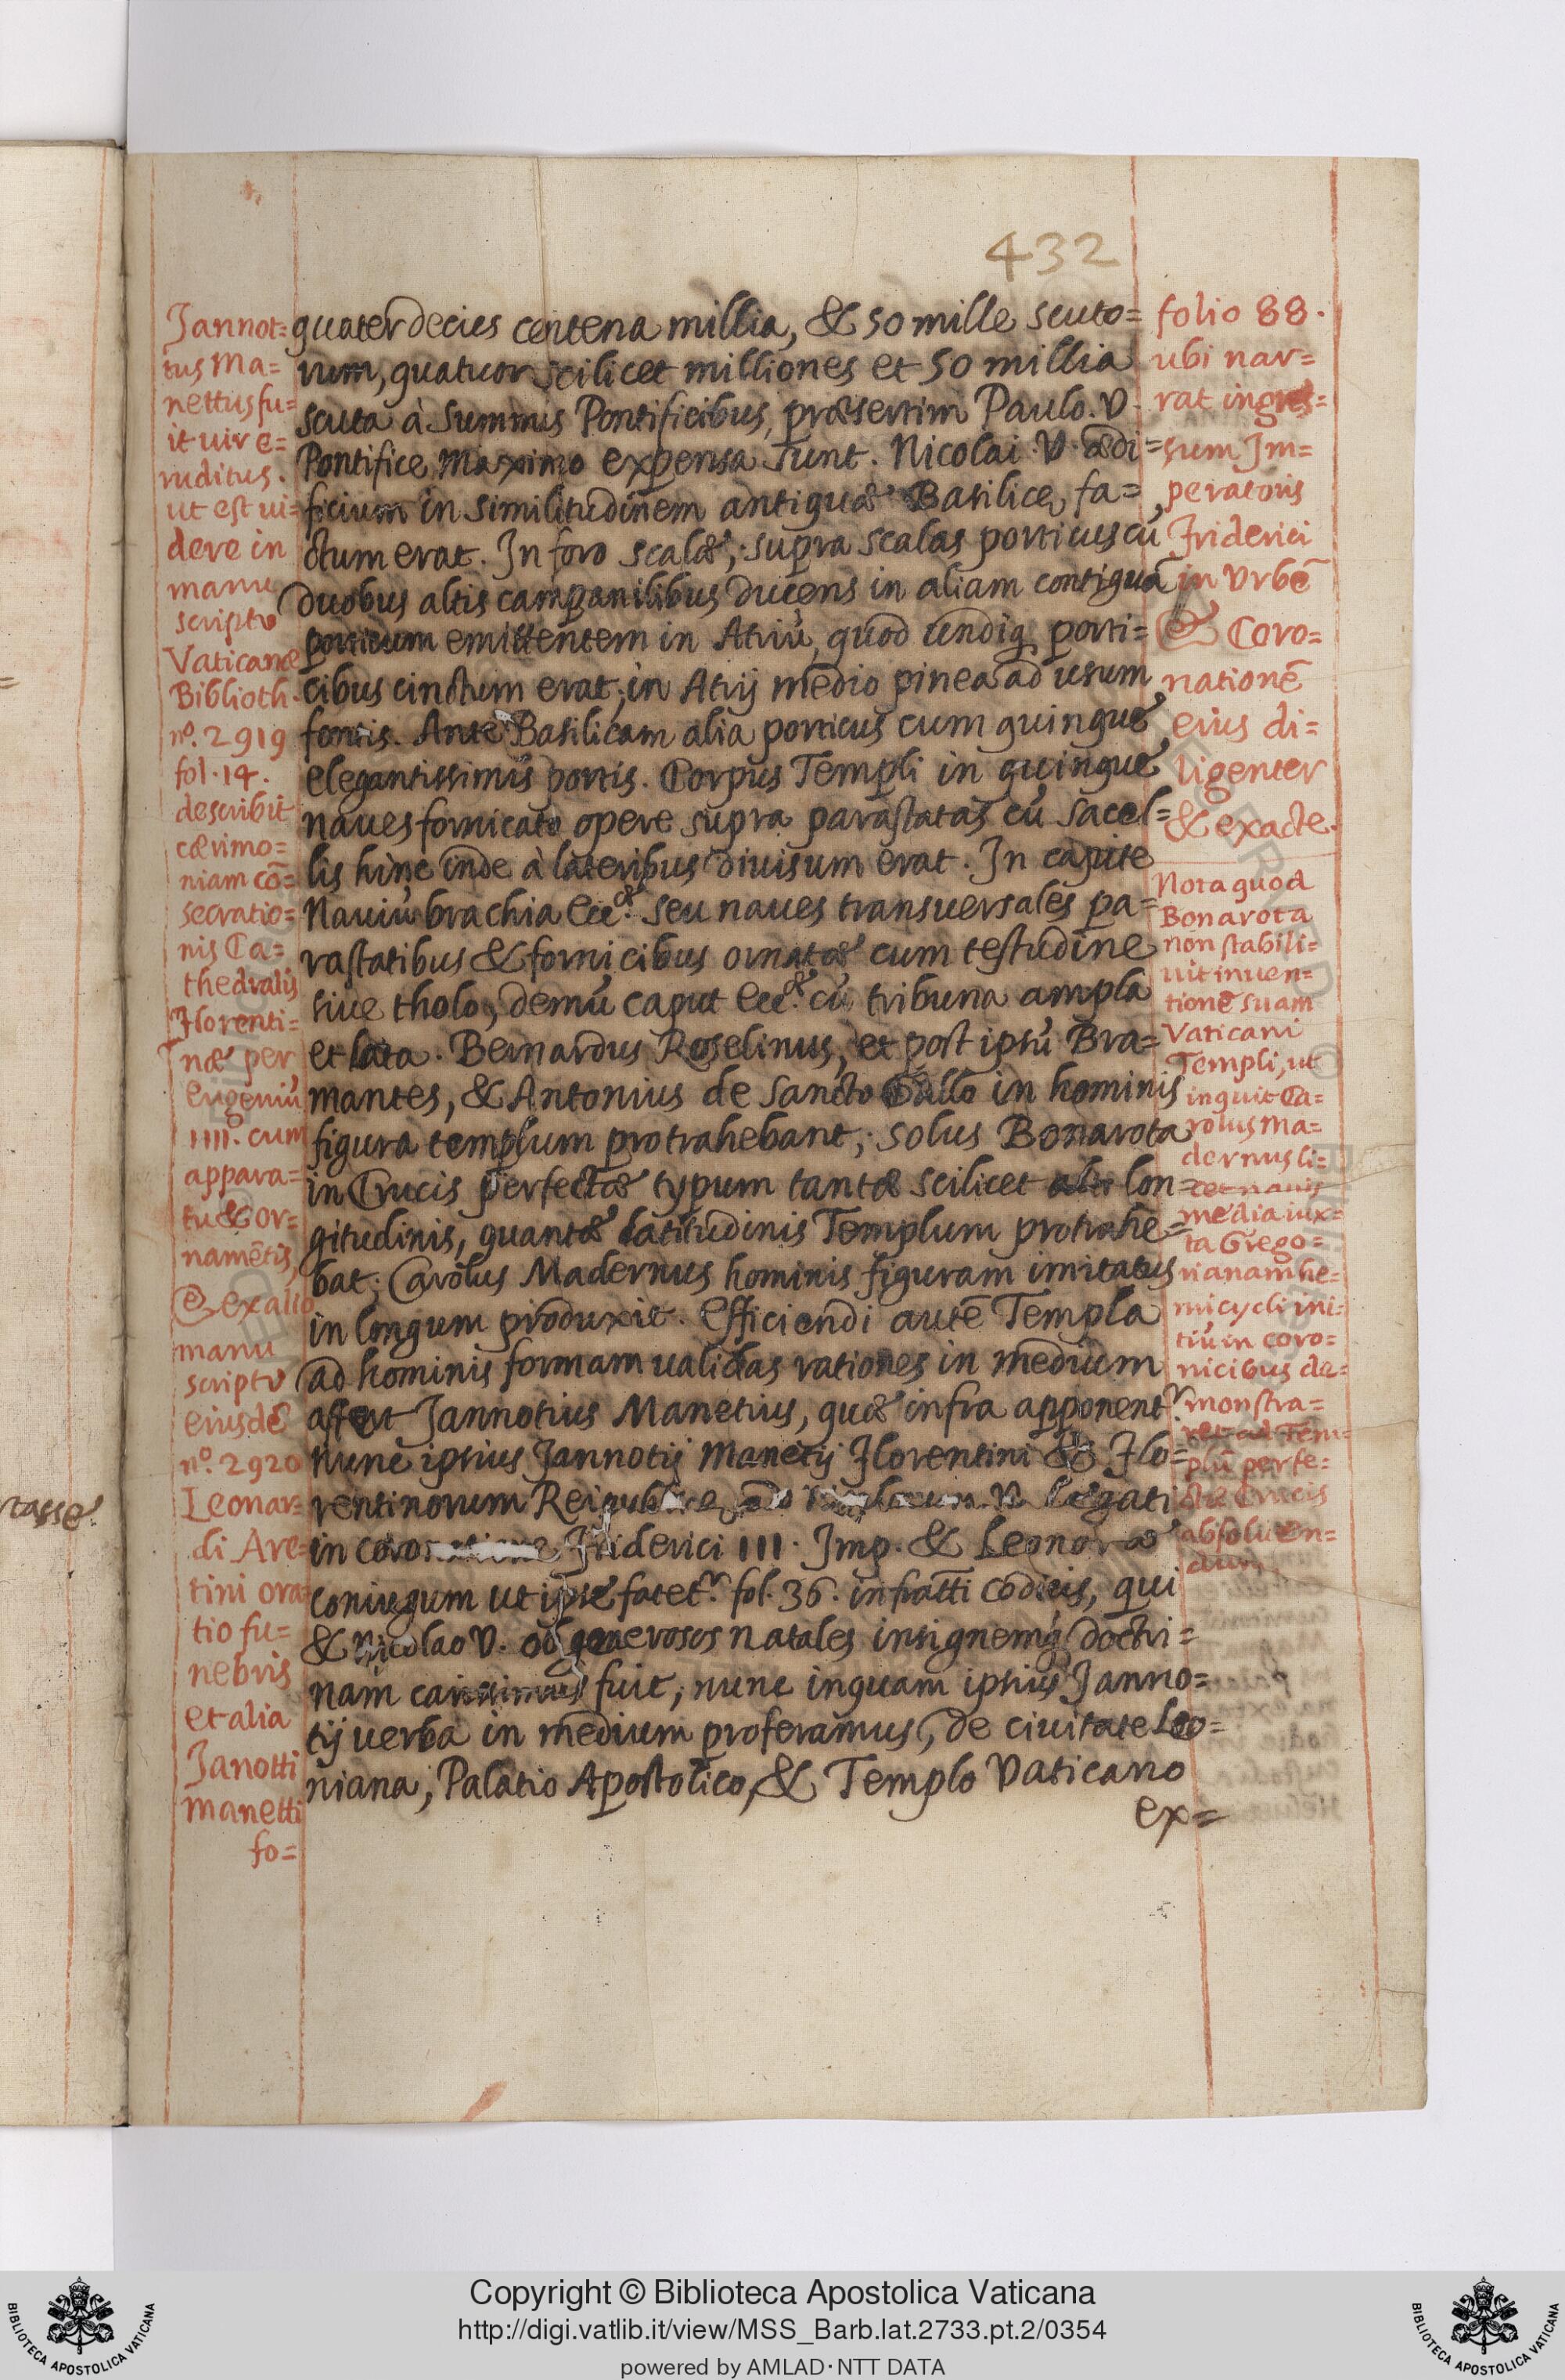 432
Jannot=
tus Ma=
nettus fu=
it uir e=
ruditus.
ut est ui=
dere in
manu
scripto
Vaticanæ
Biblioth.
nº. 2919
fol. 14.
describit
cærimo=
niam cō=
secratio=
nis Ca=
thedralis
Florenti=
næ per
Eugeniū
IIII. cum
appara=
tu & or=
namētis,
& ex alio
manu
scripto
eiusdē
nº. 2920
Leonar=
di Are=
tini ora=
tio fu=
nebris
et alia
Janotti
Manetti
fo=
quaterdecies centena millia, & 50 mille scuto=
rum, quatuor scilicet milliones et 50 millia
scuta à Summis Pontificibus, præsertim Paulo. V.
Pontifice Maximo expensa sunt. Nicolai. V. ædi=
ficium in similitudinem antiquæ Basilicę fa=
ctum erat. In foro scalæ; supra scalas porticus cū
duobus altis campanilibus ducens in aliam contiguā
porticum emittentem in Atriū, quod undiq; porti=
cibus cinctum erat; in Atrij medio pinea ad usum
fontis. Ante Basilicam alia porticus cum quinque
elegantissimis portis. Corpus Templi in quinque
naues fornicato opere supra parastatas cū sacel=
lis hinc inde à lateribus diuisum erat. In capite
Nauiū brachia Eccæ. seu naues transuersales pa=
rastatibus & fornicibus ornatæ cum testudine
siue tholo, demū caput Eccæ. cū tribuna ampla
et lata. Bernardus Roselinus, et post ipsū Bra=
mantes, & Antonius de Sancto Gallo in hominis
figura templum protrahebant; solus Bonarota
in Crucis perfectæ typum tantæ scilicet lon=
gitudinis, quantæ latitudinis Templum protrahe=
bat; Carolus Madernus hominis figuram imitatus
in longum produxit. Efficiendi autē Templa
ad hominis formam ualidas rationes in medium
affert Jannotius Manetius, quæ infra apponentr.
Nunc ipsius Jannotij Manetij Florentini & Flo=
rentinorum Reipublicę ad Nicolaum V. Legati
in coronatione Friderici III. Imp. & Leonoræ
coniugum ut ipse fatetr. fol. 36. infratti codicis, qui
& Nicolao V. ob generosos natales insignemq; doctri=
nam carissimus fuit, nunc inquam ipsius Janno=
tij uerba in medium proferamus, de ciuitate Leo=
niana, Palatio Apostolico, & Templo Vaticano
ex=
folio 88.
ubi nar=
rat ingres=
sum Im=
peratoris
Friderici
in Vrbē
& Coro=
nationē
eius di=
ligenter
& exacte.
Nota quod
Bonarota
non stabili=
uit inuen=
tionē suam
Vaticani
Templi, ut
inquit Ca=
rolus Ma=
dernus li=
cet nauis
media iux=
ta Grego=
rianam he=
micycli ini=
tiū in coro=
nicibus de=
monstra=
ret ad Tem=
plū perfe=
ctæ Crucis
absoluen=
dum,
rtasse.
Copyright © Biblioteca Apostolica Vaticana
http://digi.vatlib.it/view/MSS_Barb.lat.2733.pt.2/0354
powered by AMLAD·NTT DATA
BIBLIOTECA APOSTOLICA VATICANA
BIBLIOTECA APOSTOLICA VATICANA